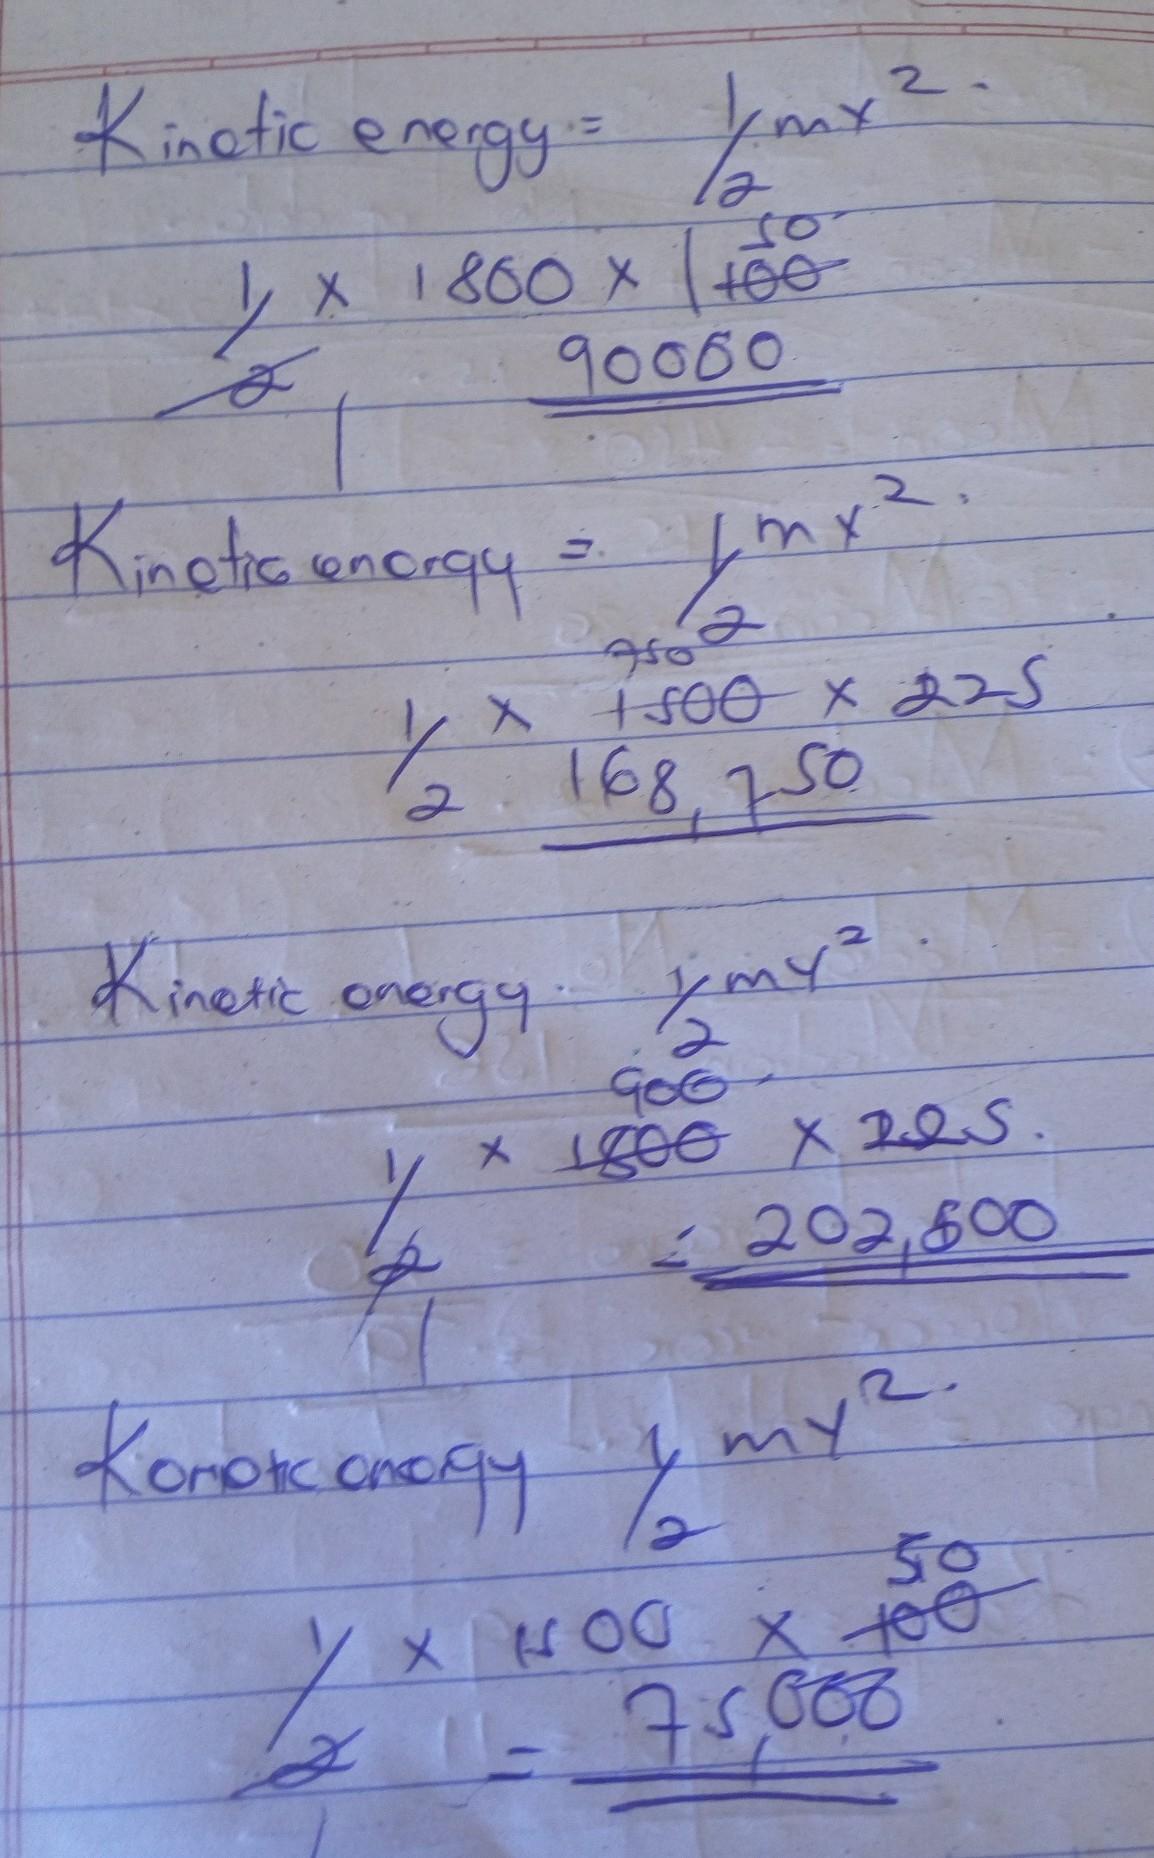 Kinetic energy = 1/2 mv².
50
1/2 × 1800 × 100
90000
1
Kinetic energy = 1/2 mv².
750
1/2 × 1500 × 225
168,750
Kinetic energy. 1/2 mv².
900
1/2 × 1800 × 225.
= 202,500
1
Kinetic energy 1/2 mv².
50
1/2 × 1500 × 100
= 75,000
1